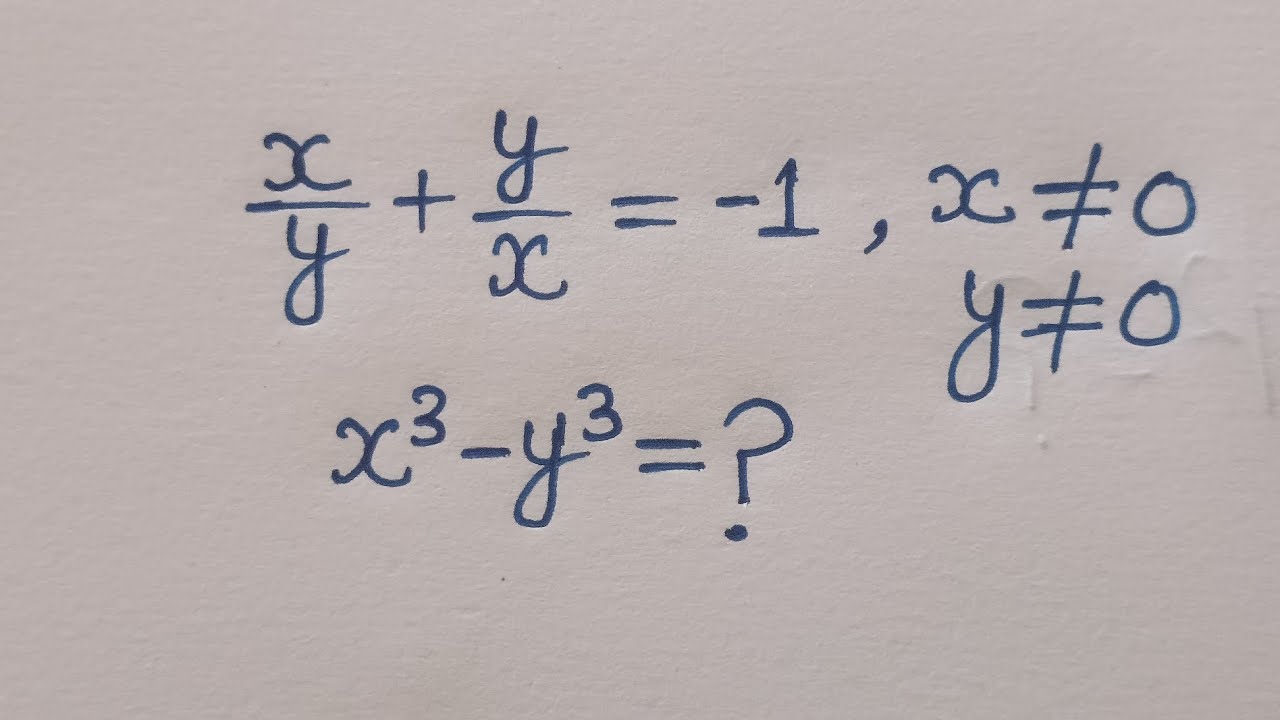 x/y + y/x = -1, x ≠ 0
y ≠ 0
x³ - y³ = ?